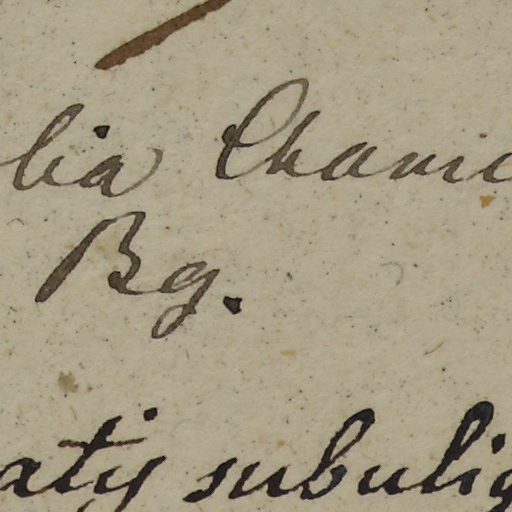 lia Chami
Bg.
atij subulig